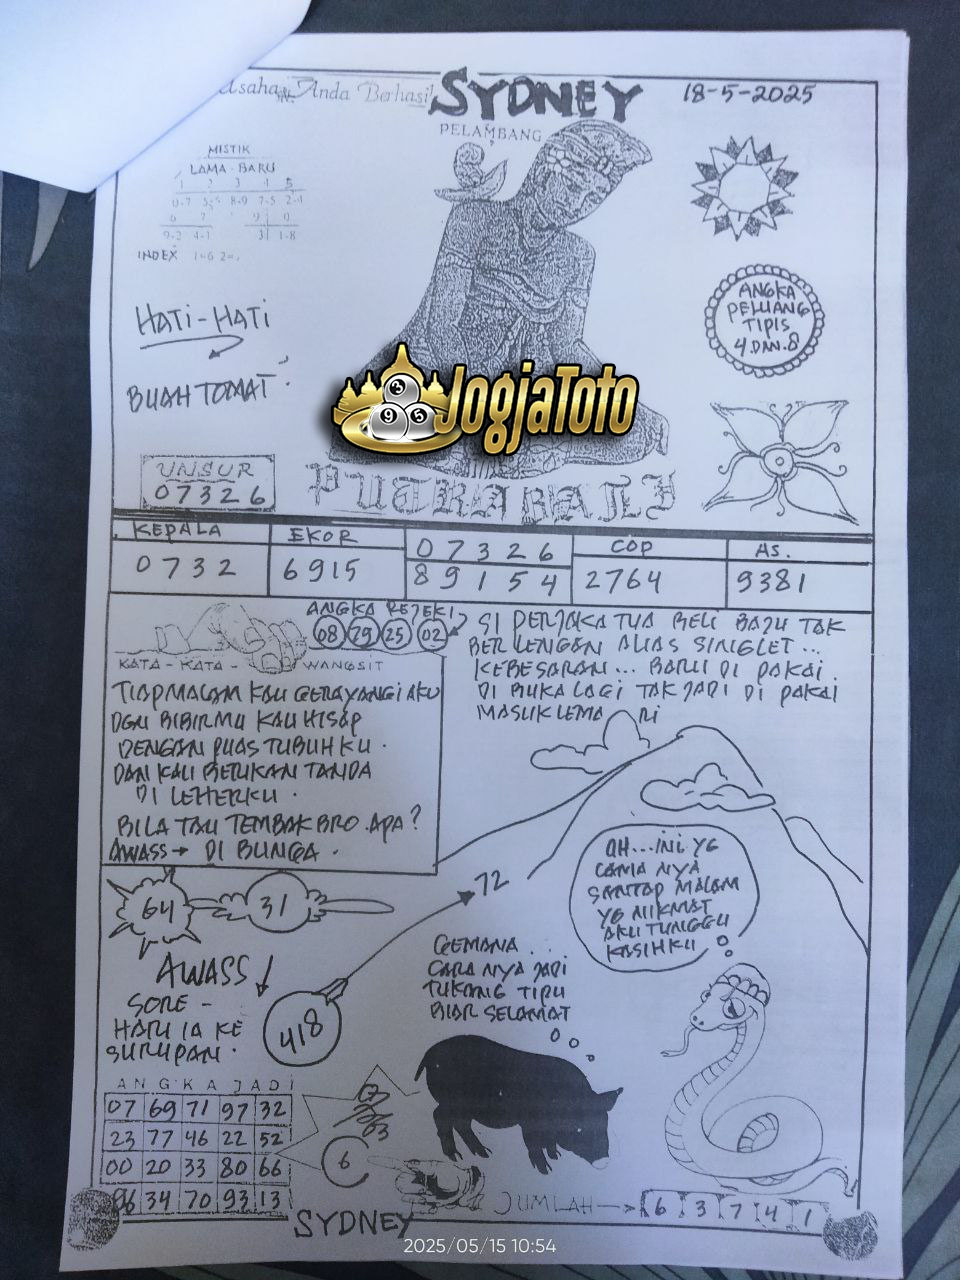 Anda Berhasil
SYDNEY
18-5-2025
PELAMBANG
MISTIK
LAMA BARU
INDEX
HATI-HATI
BUAH TOMAT
ANGKA
PELUANG
TIPIS
4.DAN.8
JogjaToto
3
9 5
UNSUR
07326
PUTRA BALI
KEPALA
EKOR
07326
COP
AS.
0732
6915
89154
2764
9381
ANGKA REJEKI
08 29 25 02
SI PERJAKA TUA BELI BAJU TAK
BERLENGAN ALIAS SINGLET...
KEBESARAN... BARU DI PAKAI.
DI BUKA LAGI TAK JADI DI PAKAI
MASUK LEMA RI
KATA-KATA-WANGSIT
TIAP MALAM KAU GERAYANGI AKU
DGN BIBIRMU KAU HISAP
DENGAN PUAS TUBUHKU.
DAN KAU BERIKAN TANDA
DI LEHERKU.
BILA TAU TEMBAK BRO.APA?
AWASS→ DI BUNGA.
64
31
72
AH...INI YG
NYA
SANTAP MALAM
YG NIKMAT
AKU TUNGGU
KASIHKU
GEMANA...
CARA NYA JADI
TUKANG TIPU
BIAR SELAMAT
AWASS
SORE-
HARI IA KE
SURUPAN.
418
ANGKA JADI
07 69 71 97 32
23 77 46 22 52
00 20 33 80 66
96 34 70 93 13
6
JUMLAH→ 6 3 7 4 1
SYDNEY
2025/05/15 10:54